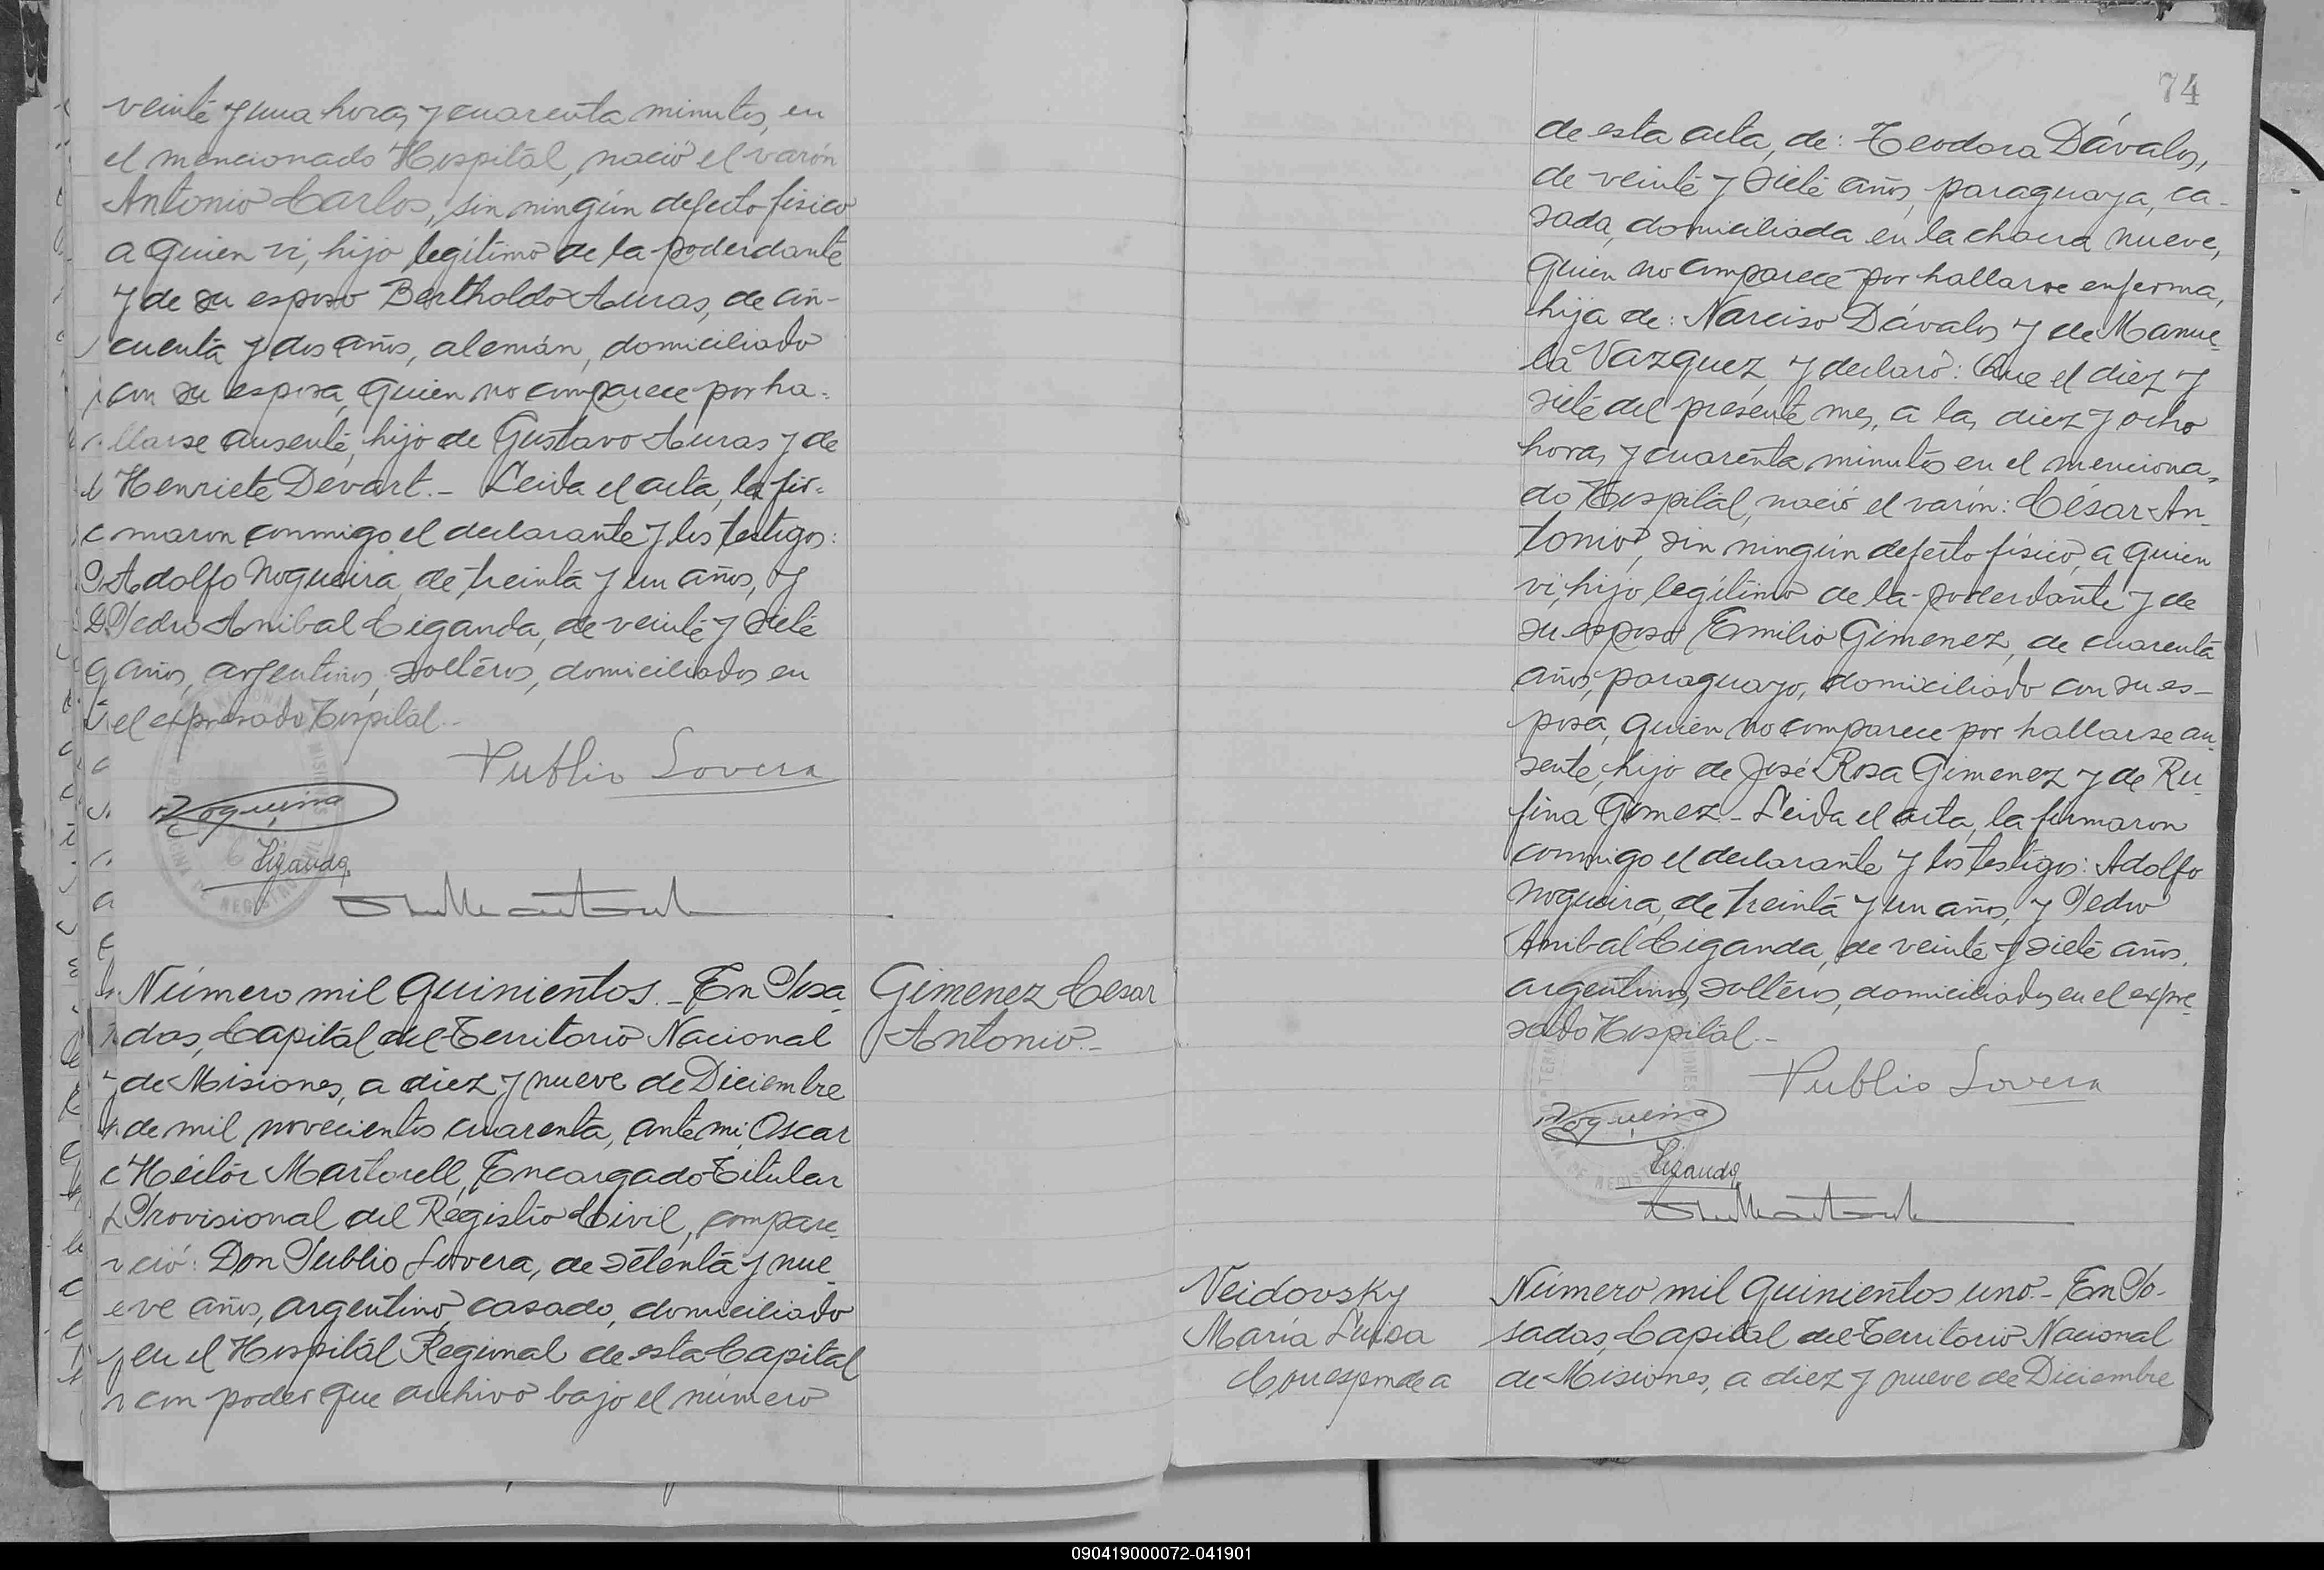 veinte y una horas y cuarenta minutos, en
el mencionado Hospital, nació el varón
Antonio Carlos, sin ningún defecto físico
a quien vi, hijo legítimo de la poderdante
y de su esposo Bertholdo Auras, de cin-
cuenta y dos años, alemán, domiciliado
con su esposa, quien no comparece por ha-
llarse ausente, hijo de Gustavo Auras y de
Henriete Devart.- Leida el acta, la fir-
maron conmigo el declarante y los testigos:
Adolfo Nogueira, de treinta y un años, y
Pedro Anibal Ciganda, de veinte y siete
años, argentinos, solteros, domiciliados en
el expresado Hospital.-
Publio Lovera
Nogueira
Ciganda
Número mil quinientos.- En Posa-
das, Capital del Territorio Nacional
de Misiones, a diez y nueve de Diciembre
de mil novecientos cuarenta, ante mi, Oscar
Héctor Martorell, Encargado Titular
Provisional del Registro Civil, compare-
ció: Don Publio Lovera, de setenta y nue-
ve años, argentino, casado, domiciliado
en el Hospital Regional de esta Capital
con poder que archivo bajo el número
Gimenez Cesar
Antonio.-
74
de esta acta, de: Teodora Dávalos,
de veinte y siete años, paraguaya, ca-
sada, domiciliada en la chacra nueve,
quien no comparece por hallarse enferma,
hija de: Narciso Dávalos y de Manue-
la Vazquez, y declaró: Que el diez y
siete del presente mes, a las diez y ocho
horas y cuarenta minutos en el menciona-
do Hospital, nació el varón: César An-
tonio, sin ningún defecto físico, a quien
vi, hijo legítimo de la poderdante y de
su esposo Emilio Gimenez, de cuarenta
años, paraguayo, domiciliado con su es-
posa, quien no comparece por hallarse au-
sente, hijo de José Rosa Gimenez y de Ru-
fina Gómez.- Leida el acta, la firmaron
conmigo el declarante y los testigos: Adolfo
Nogueira, de treinta y un años, y Pedro
Anibal Ciganda, de veinte y siete años,
argentinos, solteros, domiciliados en el expre-
sado Hospital.-
Publio Lovera
Nogueira
Ciganda
Veidovsky
María Luisa
Corresponde a
Número mil quinientos uno.- En Po-
sadas, Capital del Territorio Nacional
de Misiones, a diez y nueve de Diciembre
090419000072-041901